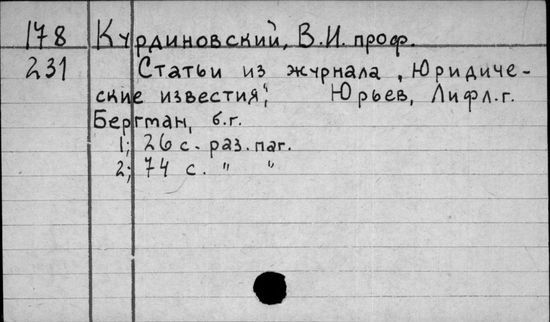 178 Курдиновский, В.И. проф.
231 Статьи из журнала „Юридиче-
ские известия", Юрьев, Лифл.г.
Бергман, б.г.
1; 26 с. раз. паг.
2; 74 с. " "